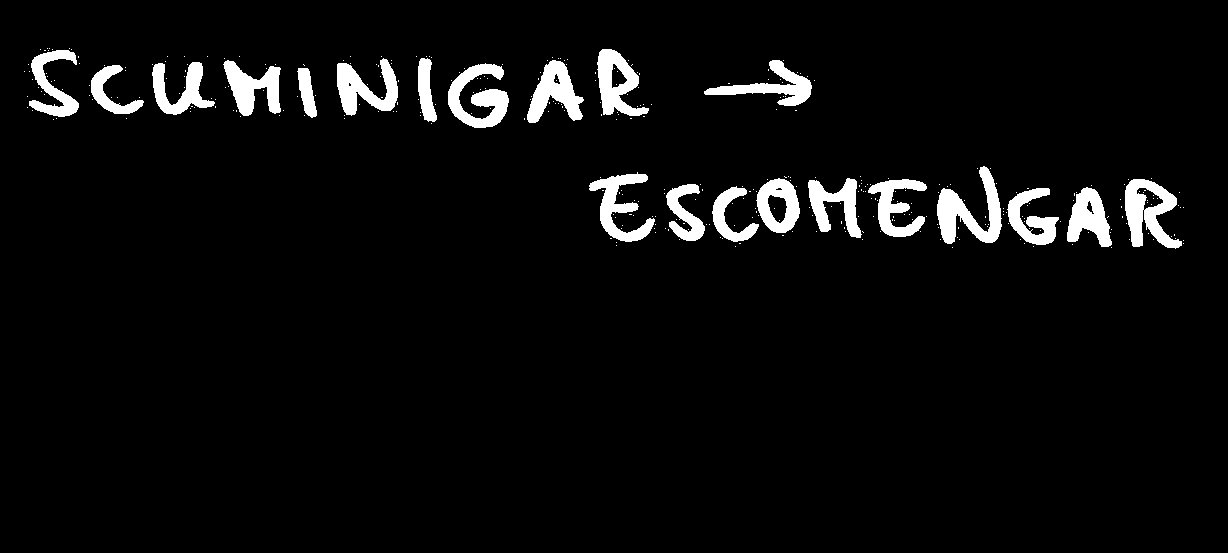 SCUMINIGAR →
ESCOMENGAR